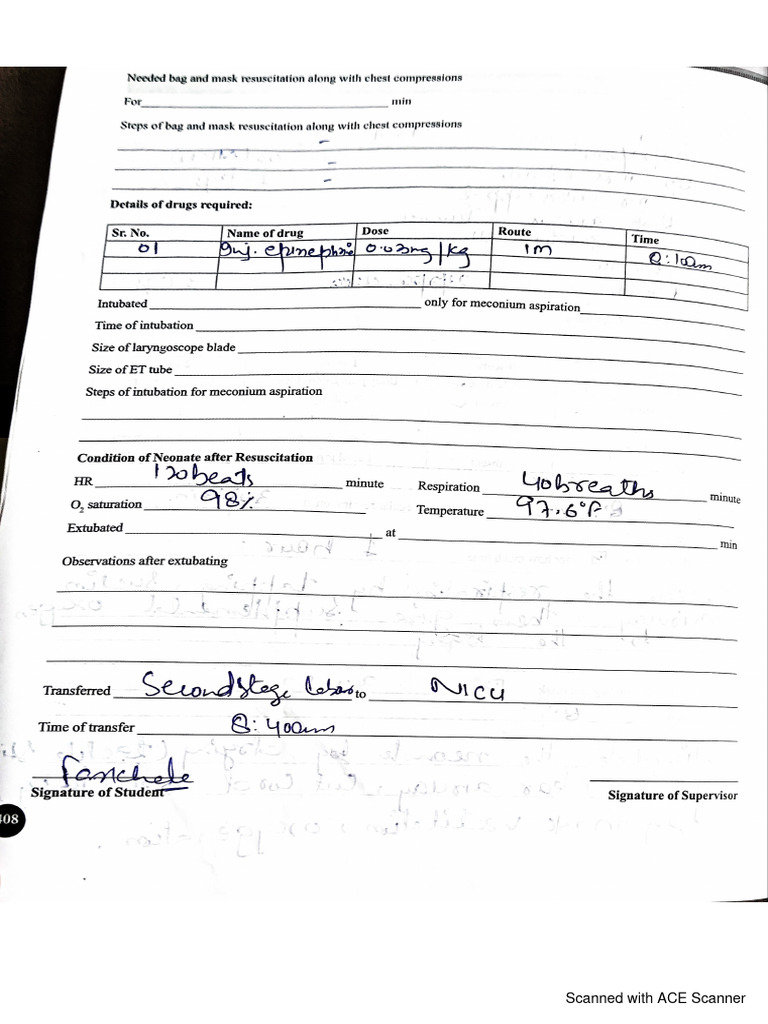 Needed bag and mask resuscitation along with chest compressions
For min
Steps of bag and mask resuscitation along with chest compressions
-
-
-
Details of drugs required:
Sr. No. Name of drug Dose Route Time
01 Inj. epinephine 0.03mg/kg IM 8:10am
Intubated only for meconium aspiration
Time of intubation
Size of laryngoscope blade
Size of ET tube
Steps of intubation for meconium aspiration
Condition of Neonate after Resuscitation
HR 120beats minute Respiration 40breaths minute
O2 saturation 98% Temperature 97.6°F
Extubated at min
Observations after extubating
Transferred Second stage labor to NICU
Time of transfer 8:40am
Signature of Student Signature of Supervisor
408
Scanned with ACE Scanner